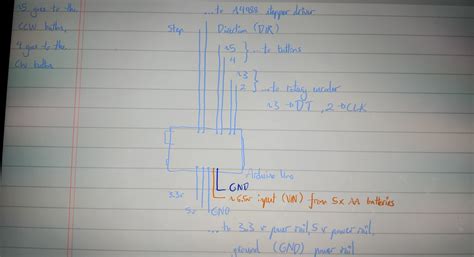 ~5 goes to the
CCW button,
4 goes to the
CW button
... to A4988 stepper driver
Step
Direction (DIR)
~5
4
} ... to buttons
~3
2
} ... to rotary encoder
~3 → DT, 2 → CLK
Arduino Uno
GND
~6.5v input (VIN) from 5x AA batteries
3.3v
5v
GND
... to 3.3v power rail, 5v power rail,
ground (GND) power rail